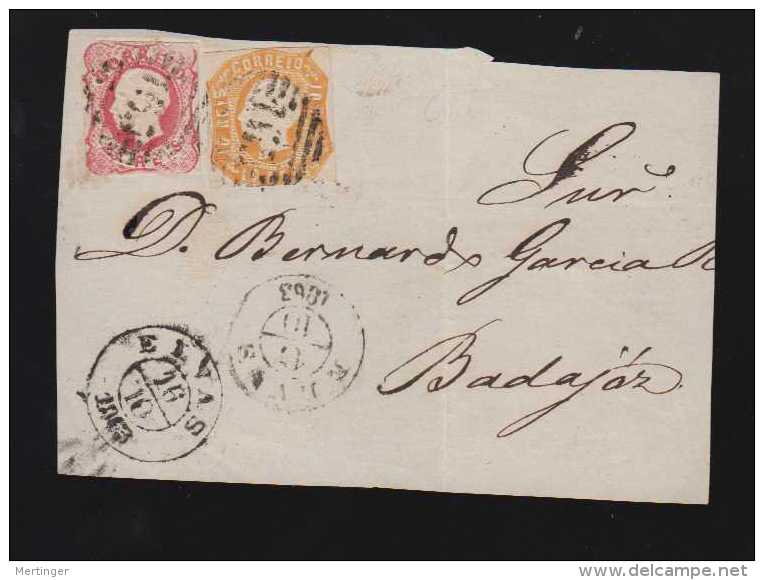 CORREIO 10
REIS
Snr.
D. Bernardo Garcia R
Badajóz
1863
10
ELVAS
16
10
1863
Mertinger
delcampe.net